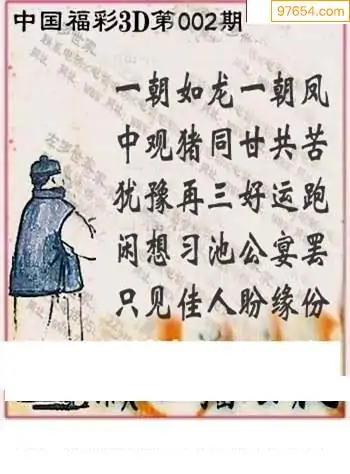 中国福彩3D第002期
97654.com
一朝如龙一朝凤
中观猪同甘共苦
犹豫再三好运跑
闲想习池公宴罢
只见佳人盼缘份